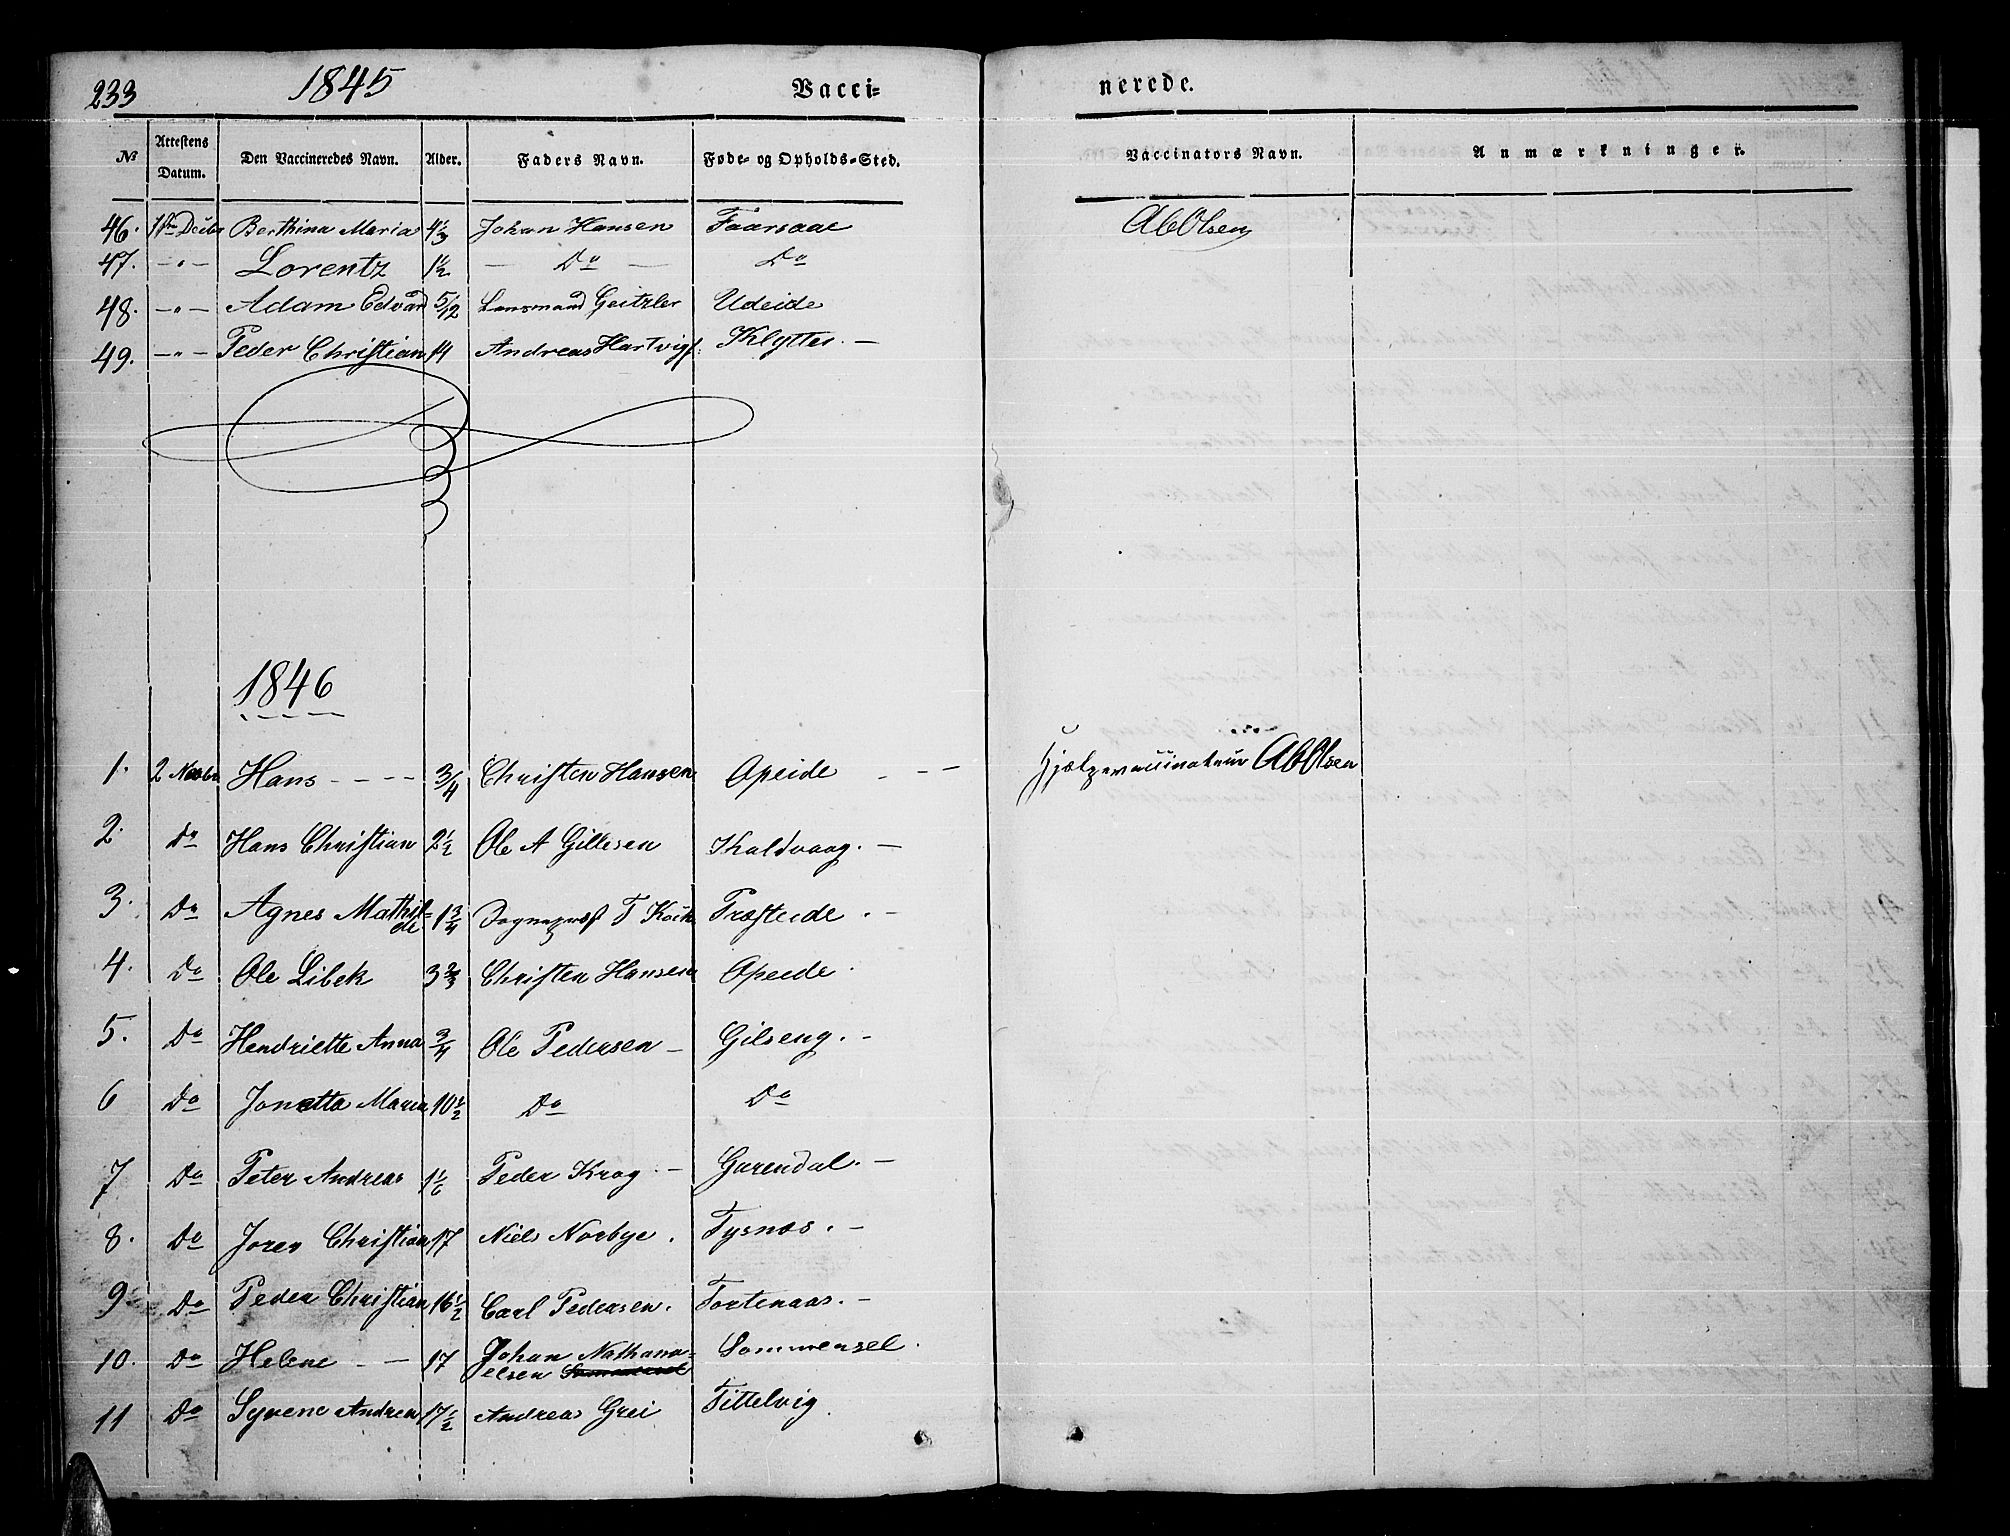 233 1845 Vacci- nerede.
№ Attestens Datum. Den Vaccineredes Navn. Alder. Faders Navn. Føde- og Opholds-Sted. Vaccinators Navn. Anmærkninger.
46. Decbr Berthina Maria 4⅓ Johan Hansen Faarsaae AbOlsen
47. -"- Lorentz 1½ — Do — Do
48. -"- Adam Edvard 5/12 Lensmand Geitzler Udeide
49. -"- Peder Christian 14 Andreas Hartvigs: Klyttes. —
1846
1. 2 Novbr Hans - - - - 3/4 Christen Hansen Opeide - - — Hjælpevaccinateur AbOlsen
2. Do Hans Christian 2½ Ole A Gillesen Kaldvaag. —
3. Do Agnes Mathil-
de 1¾ Sogneprest T Kock Præsteide . —
4. Do Ole Libek 3⅔ Christen Hansen Opeide .
5. Do Hendriette Anna 3/4 Ole Pedersen — Gilseng. —
6 Do Jonetta Maria 10½ Do Do
7 Do Peter Andreas 1 1/6 Peder Krog - — Garendal. —
8. Do Jorev Christian 17 Niels Norbye . Tysnæs . —
9. Do Peder Christian 16½ Carl Pedersen . Tortenaas. —
10. Do Helene - — 17 Johan Nathana- Sommersel .
elsen Sommersel
11 Do Syvene Andrea 17½ Andreas Grei Tittelvig